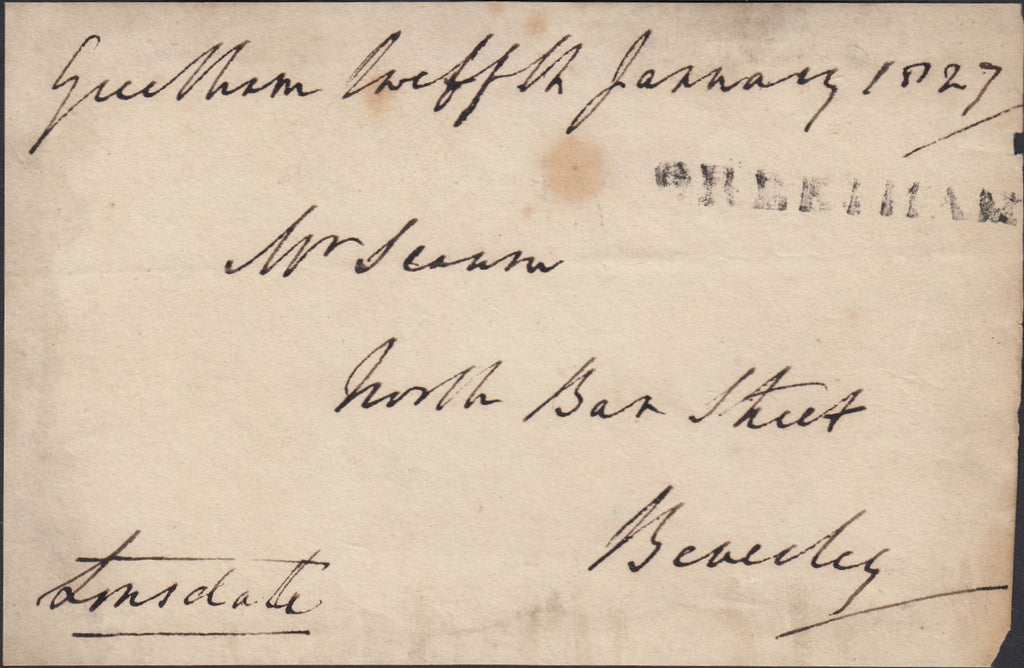 Greetham Twelfth January 1827
GREETHAM
Mr Scaum
North Bar Street
Beverley
Lonsdale